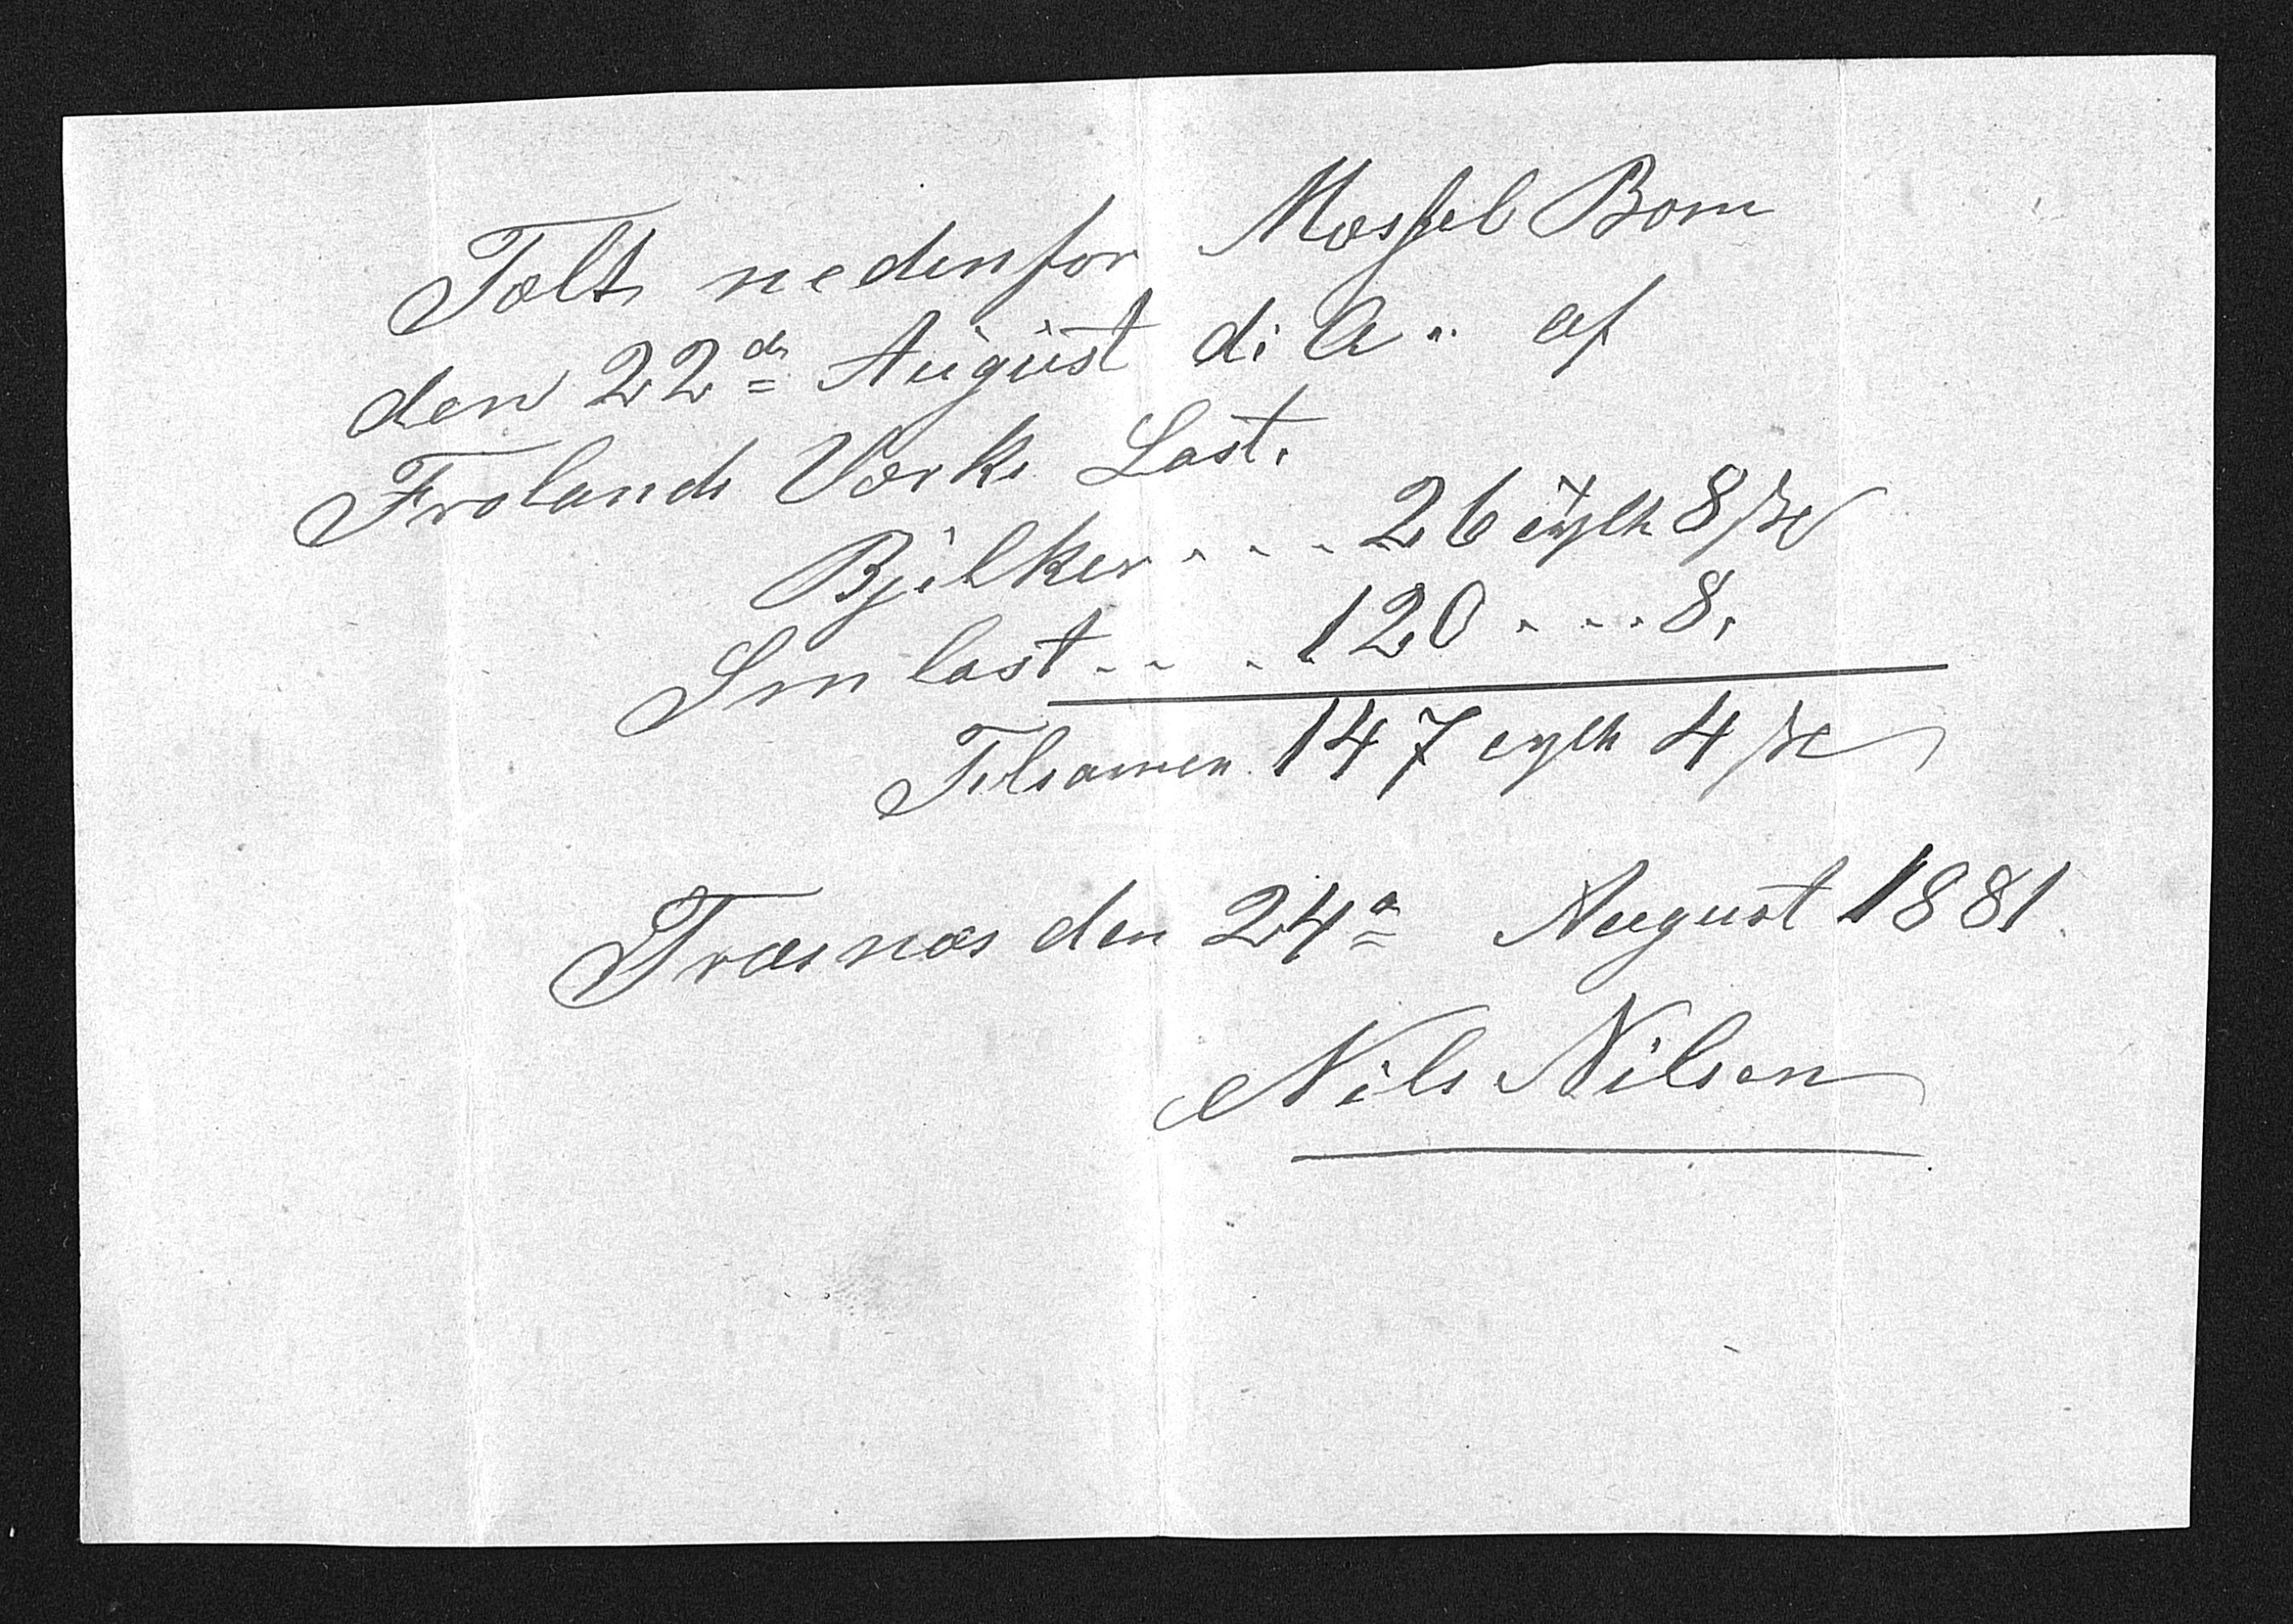 Talt nedenfor Messel Bom
den 22de August d: A.. af
Frolands Værks Last.
Bjelker.... 26 tylt 8 stk
Sm last.... 120 ... 8.
Tilsamen 147 tylt 4 stk
Træsnæs den 24de August 1881.
Nils Nilsen